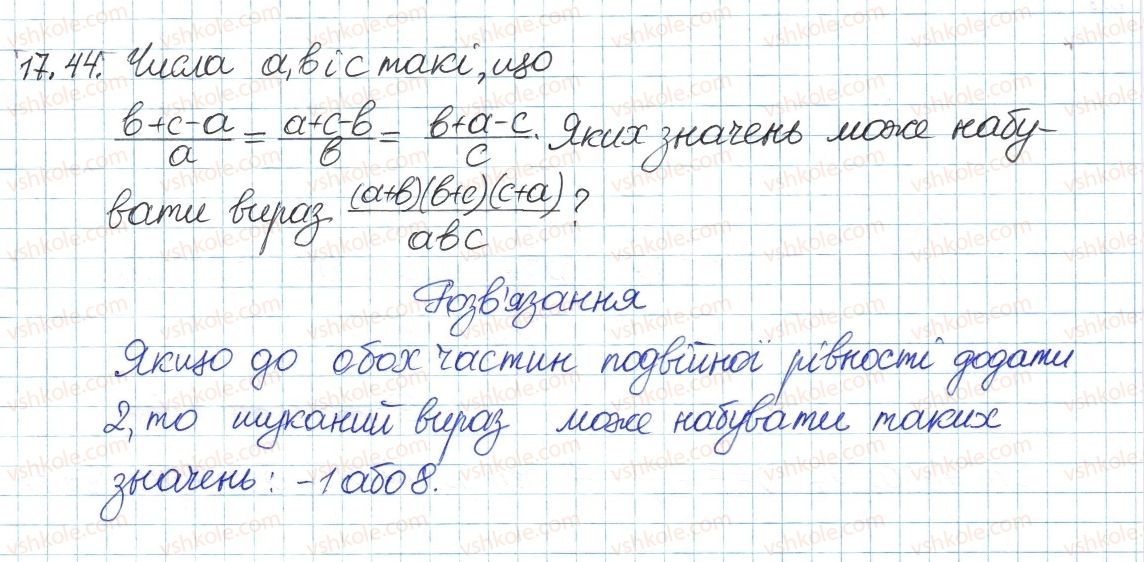 17.44. Числа a, в і с такі, що
(в+с-а)/а = (а+с-в)/в = (в+а-с)/с. Яких значень може набу-
вати вираз ((а+в)(в+с)(с+а))/(авс)?
Розв'язання
Якщо до обох частин подвійної рівності додати
2, то шуканий вираз може набувати таких
значень: -1 або 8.